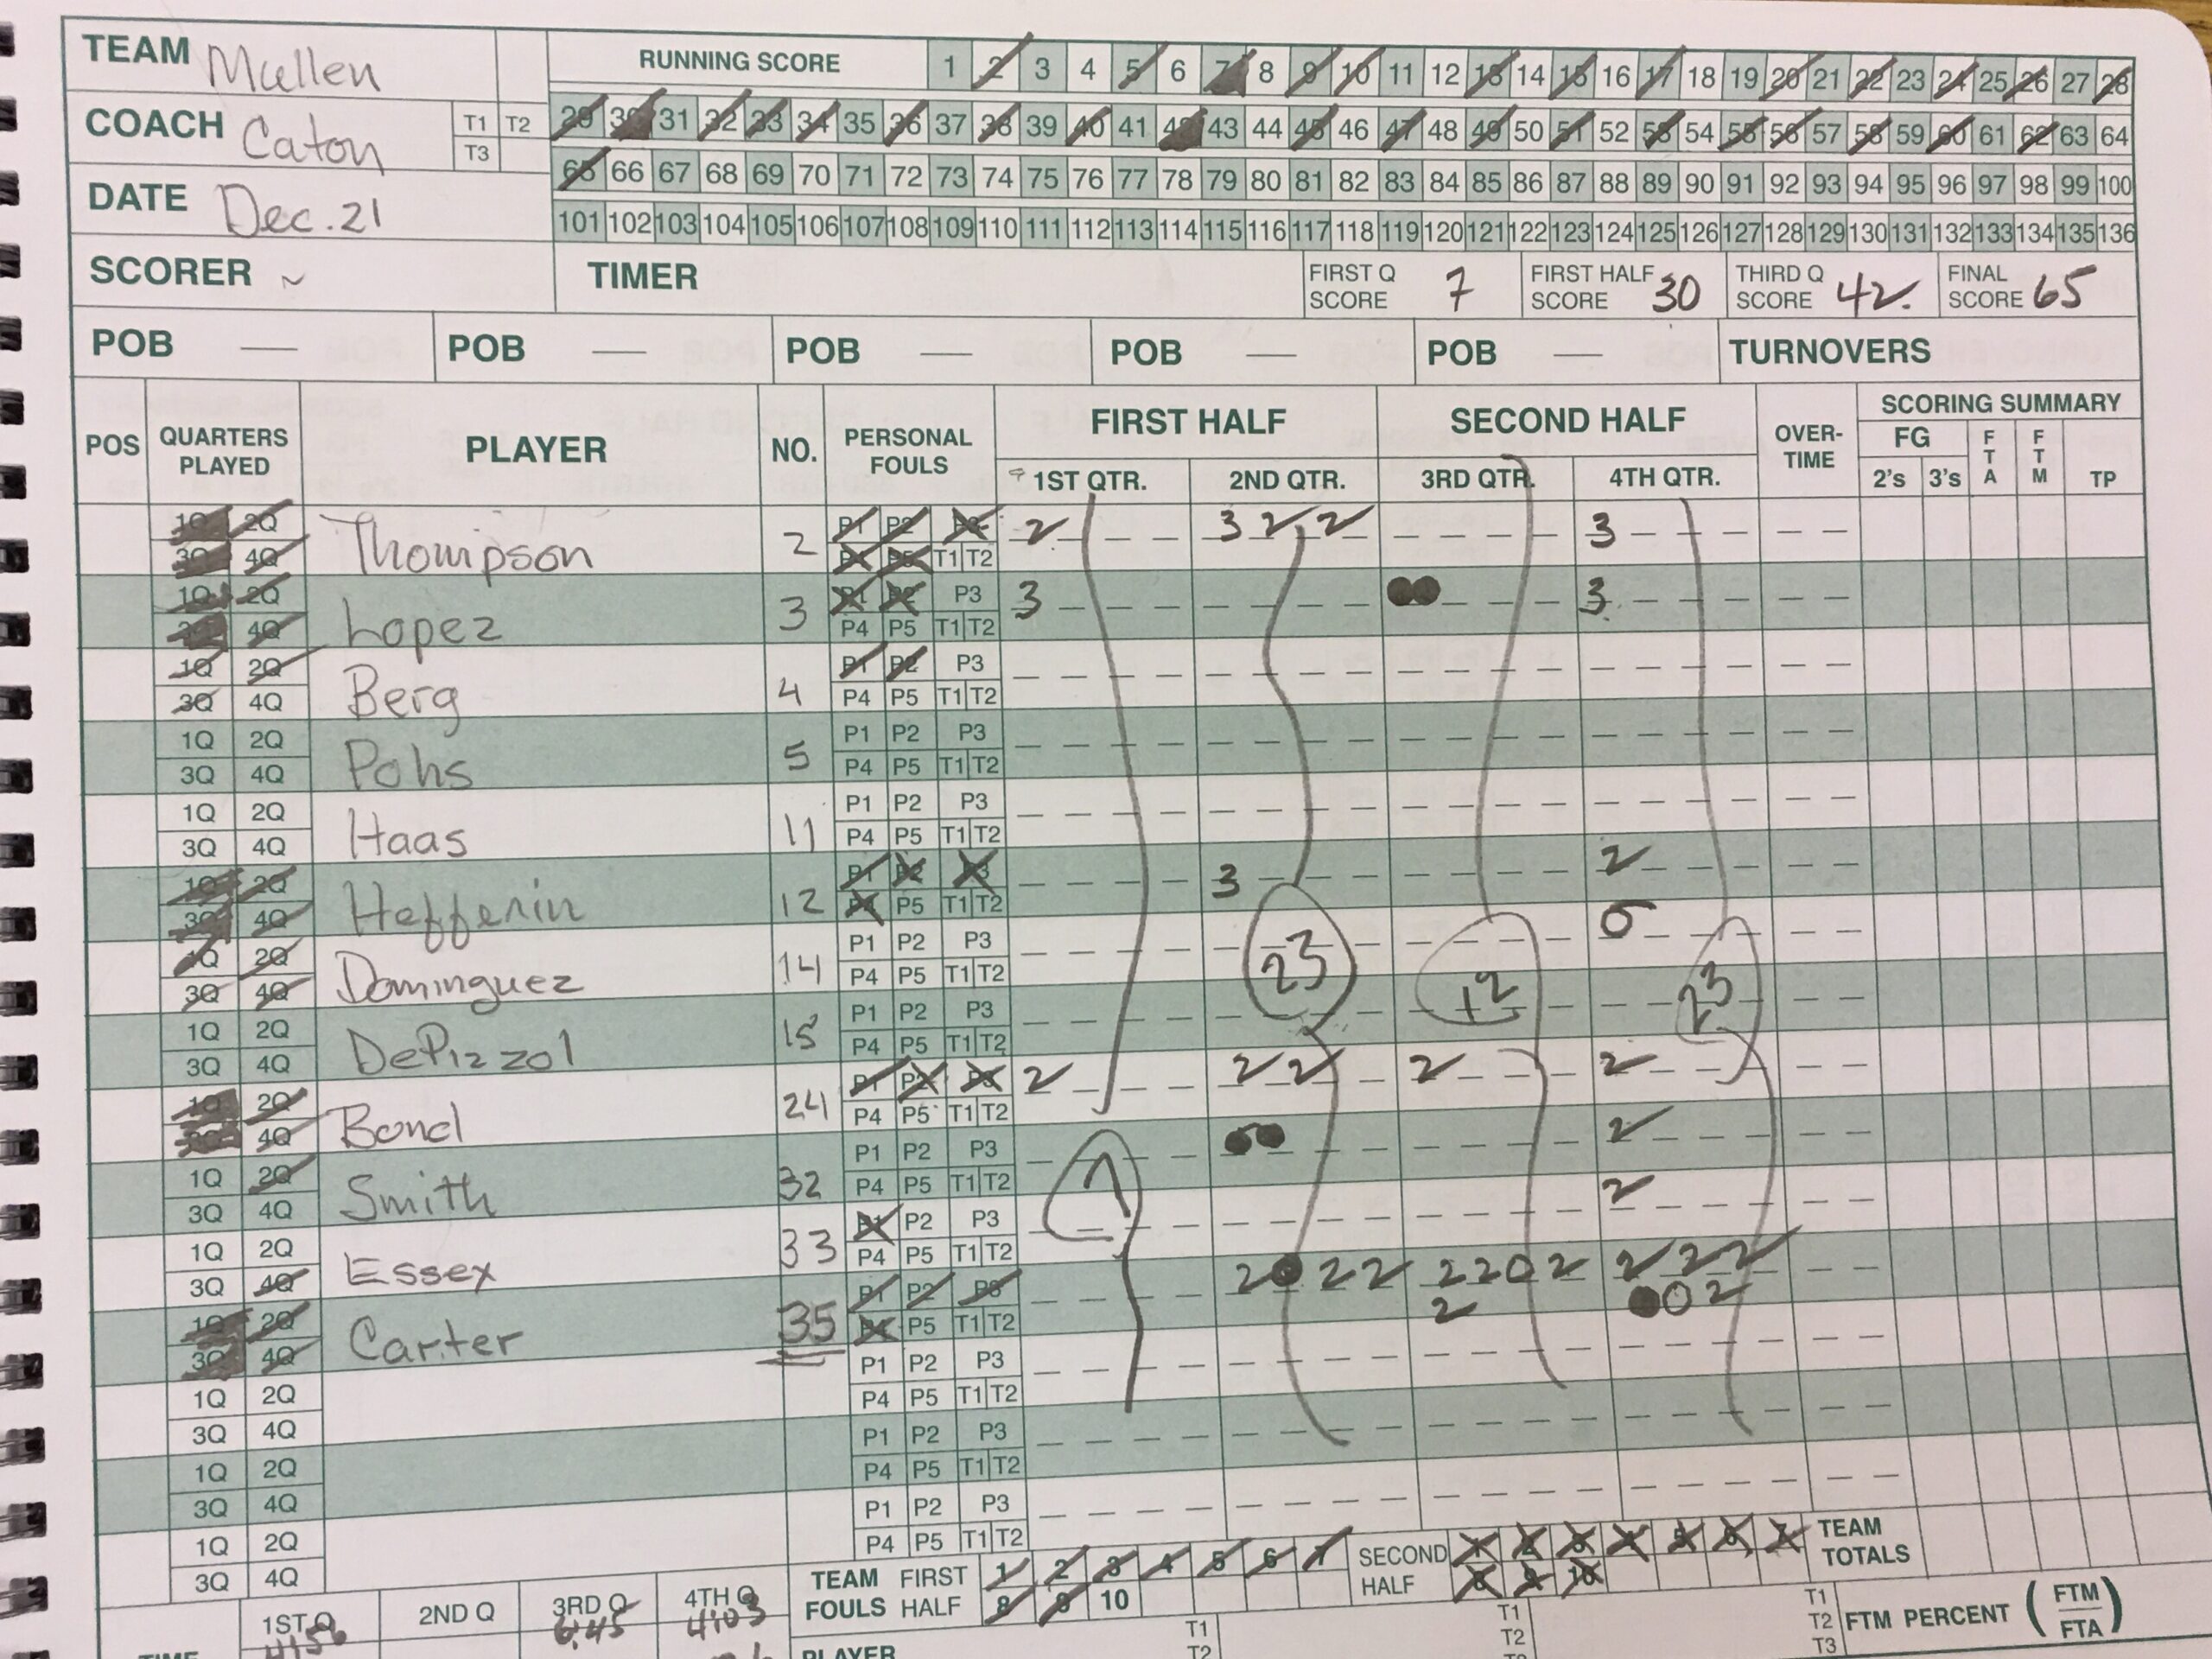 TEAM Mullen
RUNNING SCORE 1 2 3 4 5 6 7 8 9 10 11 12 13 14 15 16 17 18 19 20 21 22 23 24 25 26 27 28
COACH Caton T1 T2 T3
29 30 31 32 33 34 35 36 37 38 39 40 41 42 43 44 45 46 47 48 49 50 51 52 53 54 55 56 57 58 59 60 61 62 63 64
65 66 67 68 69 70 71 72 73 74 75 76 77 78 79 80 81 82 83 84 85 86 87 88 89 90 91 92 93 94 95 96 97 98 99 100
DATE Dec. 21
101 102 103 104 105 106 107 108 109 110 111 112 113 114 115 116 117 118 119 120 121 122 123 124 125 126 127 128 129 130 131 132 133 134 135 136
SCORER ~ TIMER FIRST Q SCORE 7 FIRST HALF SCORE 30 THIRD Q SCORE 42. FINAL SCORE 65
POB — POB — POB — POB — POB — TURNOVERS
POS QUARTERS PLAYED PLAYER NO. PERSONAL FOULS FIRST HALF SECOND HALF OVER-TIME SCORING SUMMARY
1ST QTR. 2ND QTR. 3RD QTR. 4TH QTR. FG 2's 3's FTA FTM TP
1Q 2Q Thompson 2 P1 P2 P3 2 3 2 2 3
3Q 4Q P4 P5 T1 T2
1Q 2Q Lopez 3 P1 P2 P3 3 3
3Q 4Q P4 P5 T1 T2
1Q 2Q Berg 4 P1 P2 P3
3Q 4Q P4 P5 T1 T2
1Q 2Q Pohs 5 P1 P2 P3
3Q 4Q P4 P5 T1 T2
1Q 2Q Haas 11 P1 P2 P3
3Q 4Q P4 P5 T1 T2
1Q 2Q Heffenin 12 P1 P2 P3 3 2
3Q 4Q P4 P5 T1 T2
1Q 2Q Dominguez 14 P1 P2 P3 23 12 23
3Q 4Q P4 P5 T1 T2
1Q 2Q DePizzol 15 P1 P2 P3
3Q 4Q P4 P5 T1 T2
1Q 2Q Bond 24 P1 P2 P3 2 2 2 2 2
3Q 4Q P4 P5 T1 T2
1Q 2Q Smith 32 P1 P2 P3 7 2
3Q 4Q P4 P5 T1 T2
1Q 2Q Essex 33 P1 P2 P3 2
3Q 4Q P4 P5 T1 T2
1Q 2Q Carter 35 P1 P2 P3 2 2 2 2 2 0 2 2 2 2
3Q 4Q P4 P5 T1 T2 2 0 2
1Q 2Q P1 P2 P3
3Q 4Q P4 P5 T1 T2
1Q 2Q P1 P2 P3
3Q 4Q P4 P5 T1 T2
1Q 2Q P1 P2 P3
3Q 4Q P4 P5 T1 T2
TEAM FOULS FIRST HALF 1 2 3 4 5 6 7 8 9 10 SECOND HALF 1 2 3 4 5 6 7 8 9 10 TEAM TOTALS
1ST Q 2ND Q 3RD Q 4TH Q
4:56 6:45 4:03
T1 T2 T1 T2 T1 T2 T3 FTM PERCENT (FTM/FTA)
TIME PLAYER